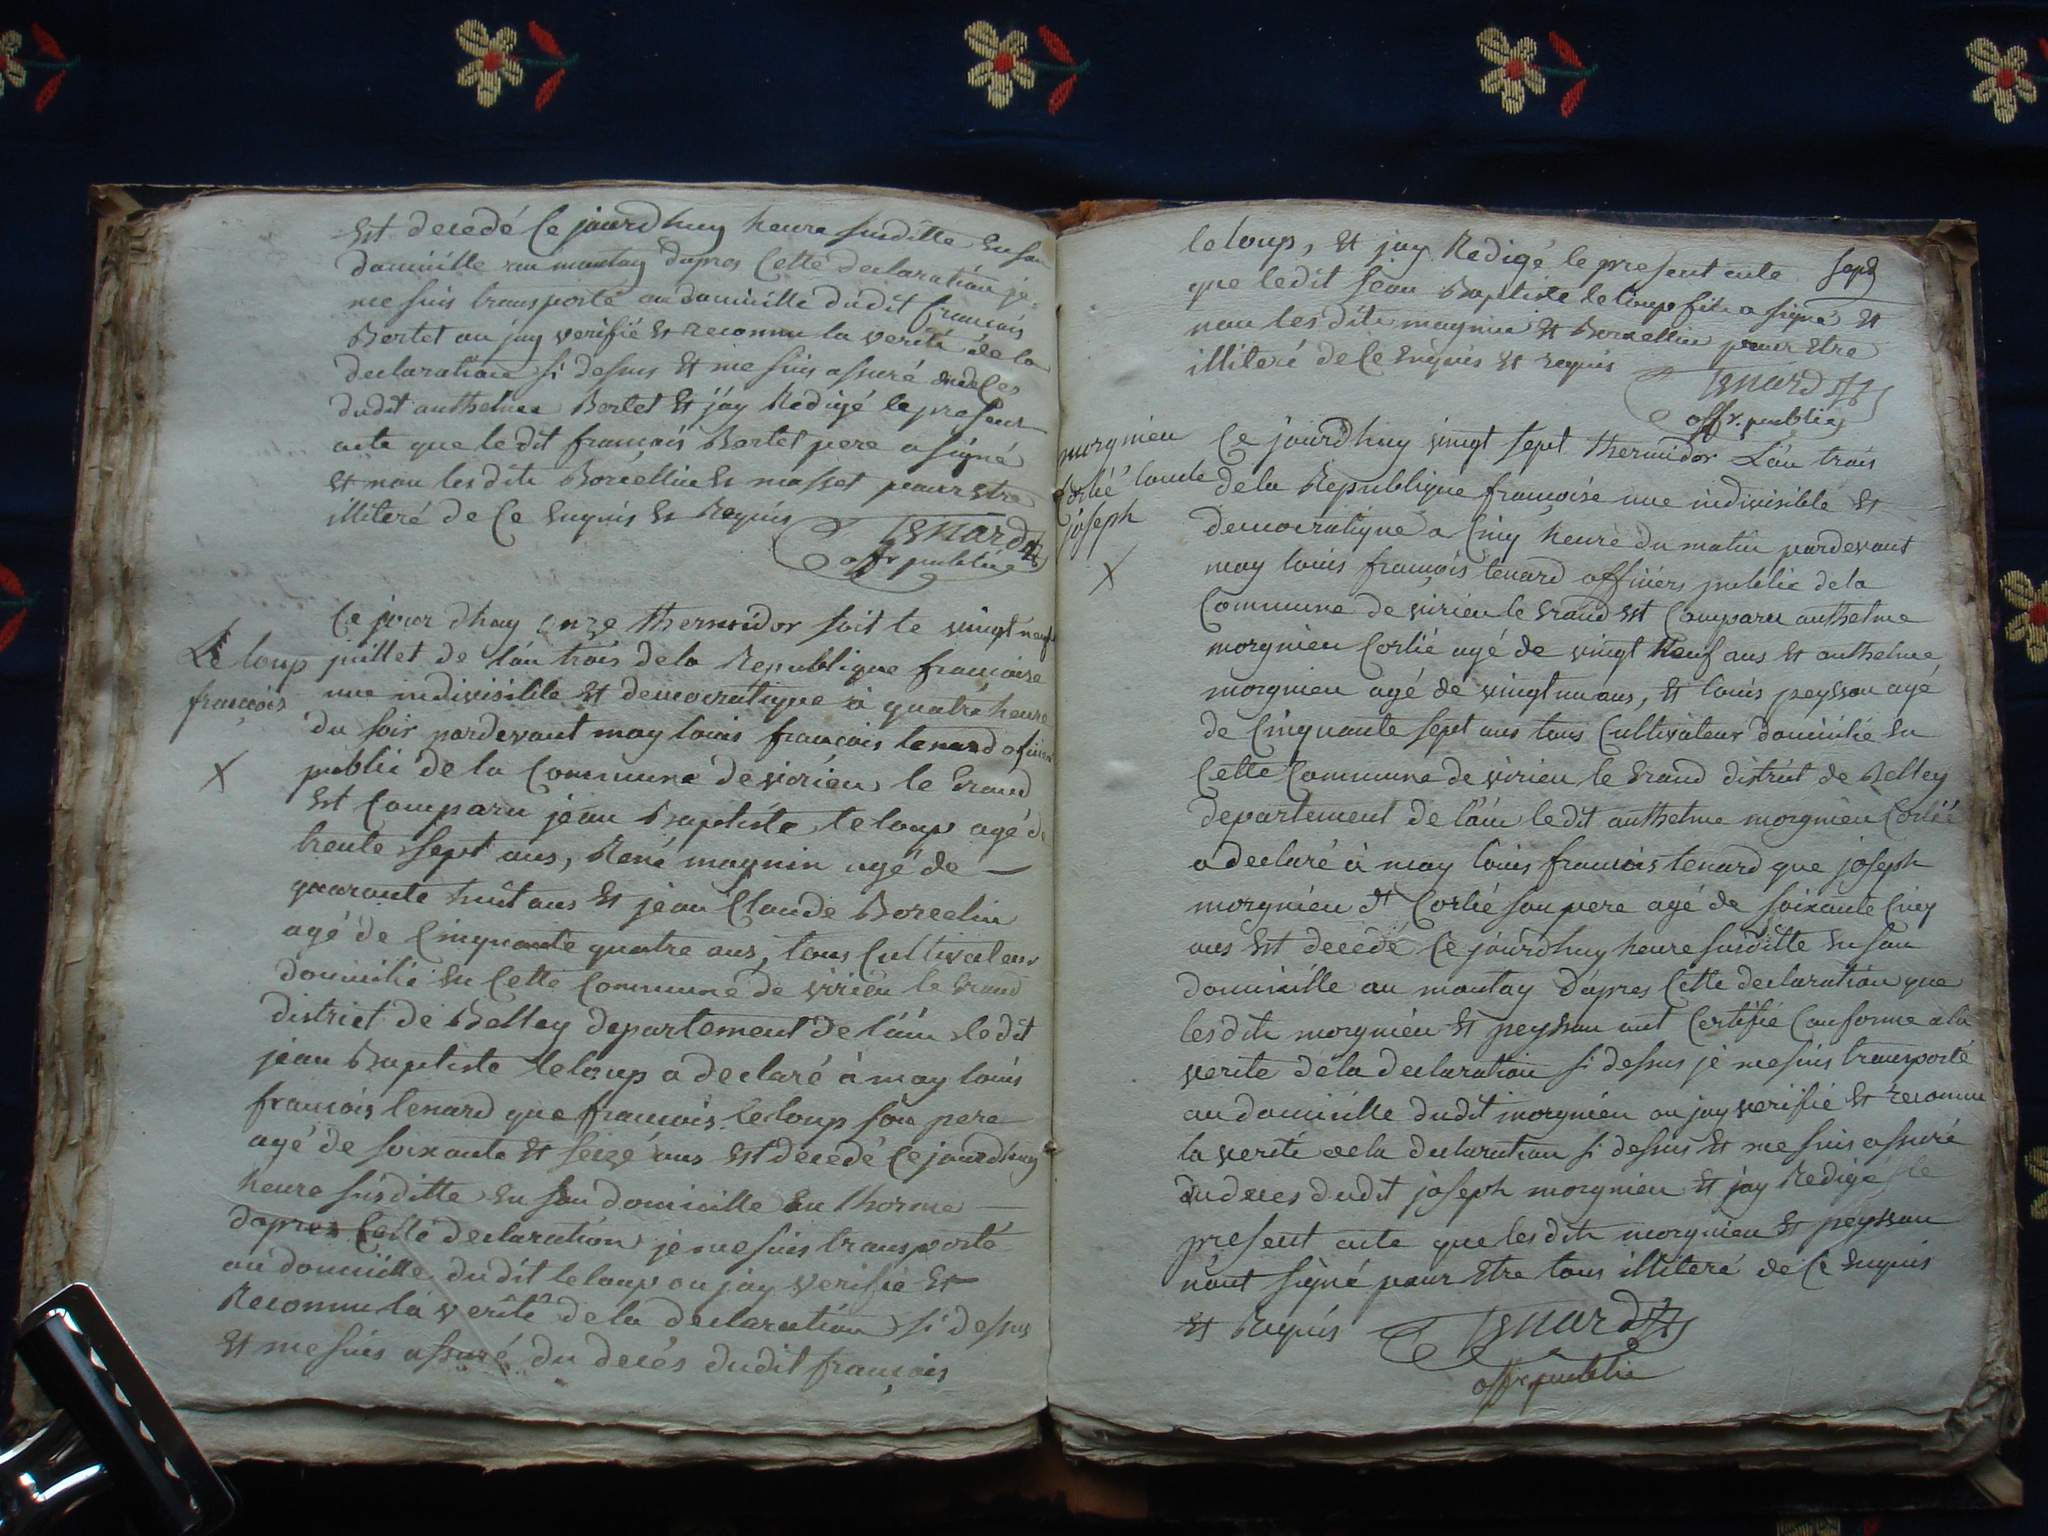 Est decedé Ce jourdhuy heure susditte En son
domicille au montay dapres Cette declaration je
me suis transporté au domicille dudit francois
Bertet ou jay verifié Et reconnu la verité de la
declaration si dessus Et me suis assuré du decés
dudit anthelme Bertet Et j'ay Redigé le present
acte que le dit francois Bertet pere a signé
Et non les dits Borcellin Et masset pour Etre
illiteré de Ce Enquis Et Requis
Tenard
offr public
Le loup
francois
X
Ce jour dhuy onze thermidor soit le vingt neuf
juillet de l'an trois de la Republique francoise
une indivisible Et democratique à quatre heure
du soir pardevant moy louis francois tenard officier
public de la Commune de virieu le Grand
Est Comparu jean Baptiste leloup agé de
trente sept ans, René magnin agé de
quarante huit ans Et jean Claude Borcelin
agé de Cinquante quatre ans, tous Cultivateur
domicilié En Cette Commune de virieu le Grand
district de Belley departement de l'ain le dit
jean Baptiste leloup a declaré à moy louis
francois tenard que francois leloup son pere
agé de soixante Et seize ans Est decedé Ce jourdhuy
heure susditte En son domicille En thorme
dapres Cette declaration je me suis transporté
au domicille dudit leloup ou jay verifié Et
Reconnu la verité de la declaration si dessus
Et me suis assuré du decés dudit francois
leloup, Et jay Redigé le present acte
que ledit jean Baptiste leloup fils a signé Et
non lesdits magnin Et Borcellin pour Etre
illiteré de Ce Enquis Et requis
Tenard
offr. public
sept
morgnieu
Corlié
joseph
X
Ce jourdhuy vingt sept thermidor L'an trois
de la Republique francoise une indivisible Et
democratique a Cinq heure du matin pardevant
moy louis francois tenard officiers public de la
Commune de virieu le Grand Est Comparu anthelme
morgnieu Corlié agé de vingt Neuf ans Et anthelme
morgnieu agé de vingt un ans, Et louis peysson agé
de Cinquante sept ans tous Cultivateur domicilié En
Cette Commune de virieu le Grand district de Belley
departement de l'ain ledit anthelme morgnieu Corlié
a declaré à moy louis francois tenard que joseph
morgnieu dt Corlié son pere agé de soixante Cinq
ans Est decedé Ce jourdhuy heure susditte En son
domicille au montay d'apres Cette declaration que
lesdits morgnieu Et peysson ont Certifié Conforme a la
verité de la declaration si dessus je me suis transporté
au domicille dudit morgnieu ou jay verifié Et reconnu
la verité de la declaration si dessus Et me suis assuré
du deces dudit joseph morgnieu Et jay Redigé le
present acte que lesdits morgnieu Et peysson
n'ont signé pour Etre tous illiteré de Ce Enquis
Et Requis
Tenard
offr public